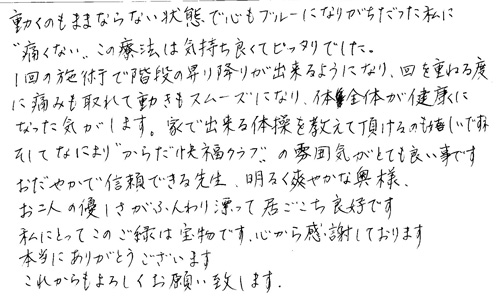 動くのもままならない状態で心もブルーになりがちだった私に
"痛くない"この療法は気持ち良くてピッタリでした。
1回の施術で階段の昇り降りが出来るようになり、回を重ねる度
に痛みも取れて動きもスムーズになり、体全体が健康に
なった気がします。家で出来る体操を教えて頂けるのも嬉しいですネ
そしてなにより"からだ快福クラブ"の雰囲気がとても良い事です
おだやかで信頼できる先生、明るく爽やかな奥様、
お二人の優しさがふんわり漂って居ごこち良好です
私にとってこのご縁は宝物です、心から感謝しております
本当にありがとうございます
これからもよろしくお願い致します.